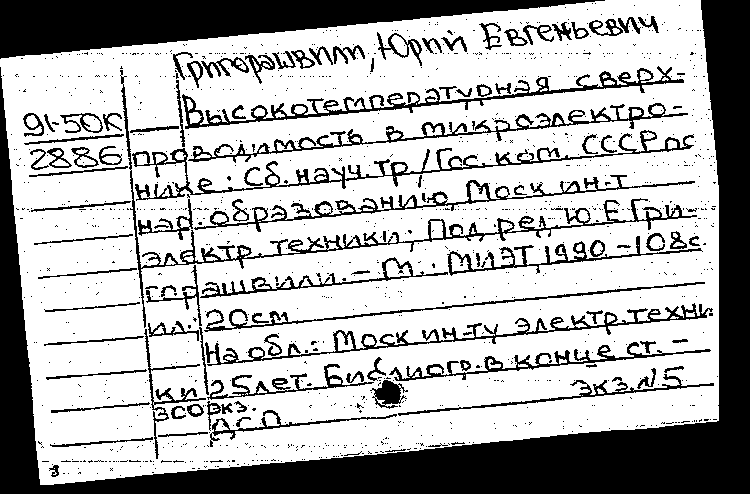 Григорашвили, Юрий Евгеньевич
91-50К
2886
Высокотемпературная сверх-
проводимость в микроэлектро-
нике: Сб. науч. тр/Гос. ком. СССР по
нар. образованию, Моск ин-т
электр. техники; Под ред Ю. Е Гри-
горашвили. – М.: МИЭТ, 1990. – 108с.
ил.; 20см
На обл.: Моск ин-ту электр. техни-
ки 25лет. Библиогр. в конце ст. –
экз. N 5
350 экз.
ДСП.